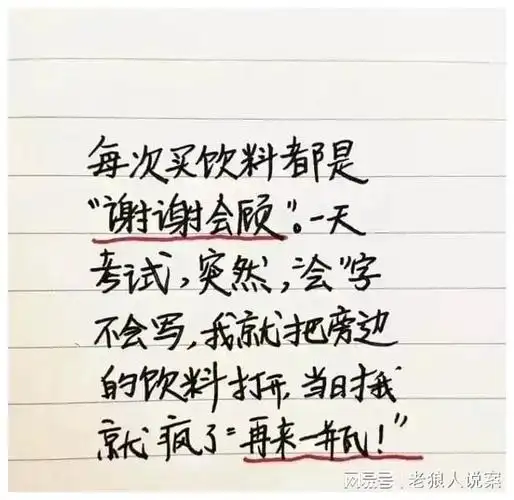 每次买饮料都是
“谢谢会顾”。一天
考试,突然,浍"字
不会写,我就把旁边
的饮料打开,当日我
就疯了:“再来一瓶!”
网易号 老狼人说案